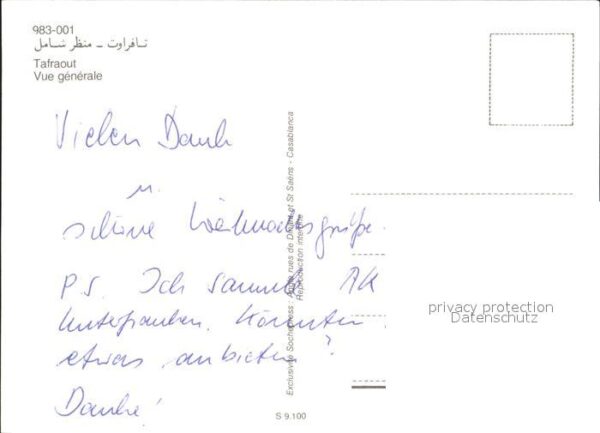 983-001
تافراوت - منظر شامل
Tafraout
Vue générale
Vielen Dank
u.
schöne Weihnachtsgrüße.
PS. Ich sammle AK
Könnten
etwas anbieten?
Danke!
Exclusivité Sochepress - Angle rues de Dinant et St Saëns - Casablanca
Reproduction interdite
privacy protection
Datenschutz
S 9.100